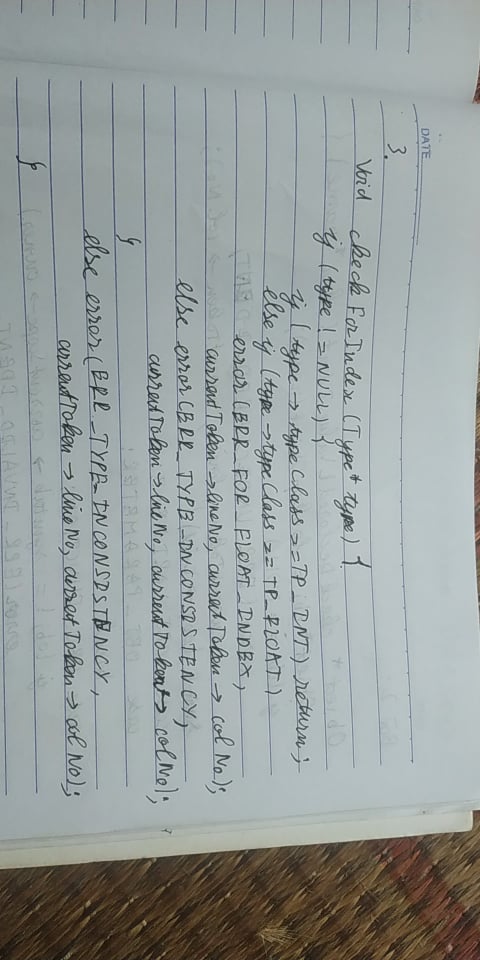 DATE
3.
Void checkForIndex (Type* type) {
if (type != NULL) {
if (type → typeClass == TP_INT) return;
else if (type → typeClass == TP_FLOAT)
error (ERR_FOR_FLOAT_INDEX,
currentToken → lineNo, currentToken → colNo);
else error (ERR_TYPE_INCONSISTENCY,
currentToken → lineNo, currentToken → colNo);
}
else error (ERR_TYPE_INCONSISTENCY,
currentToken → lineNo, currentToken → colNo);
}